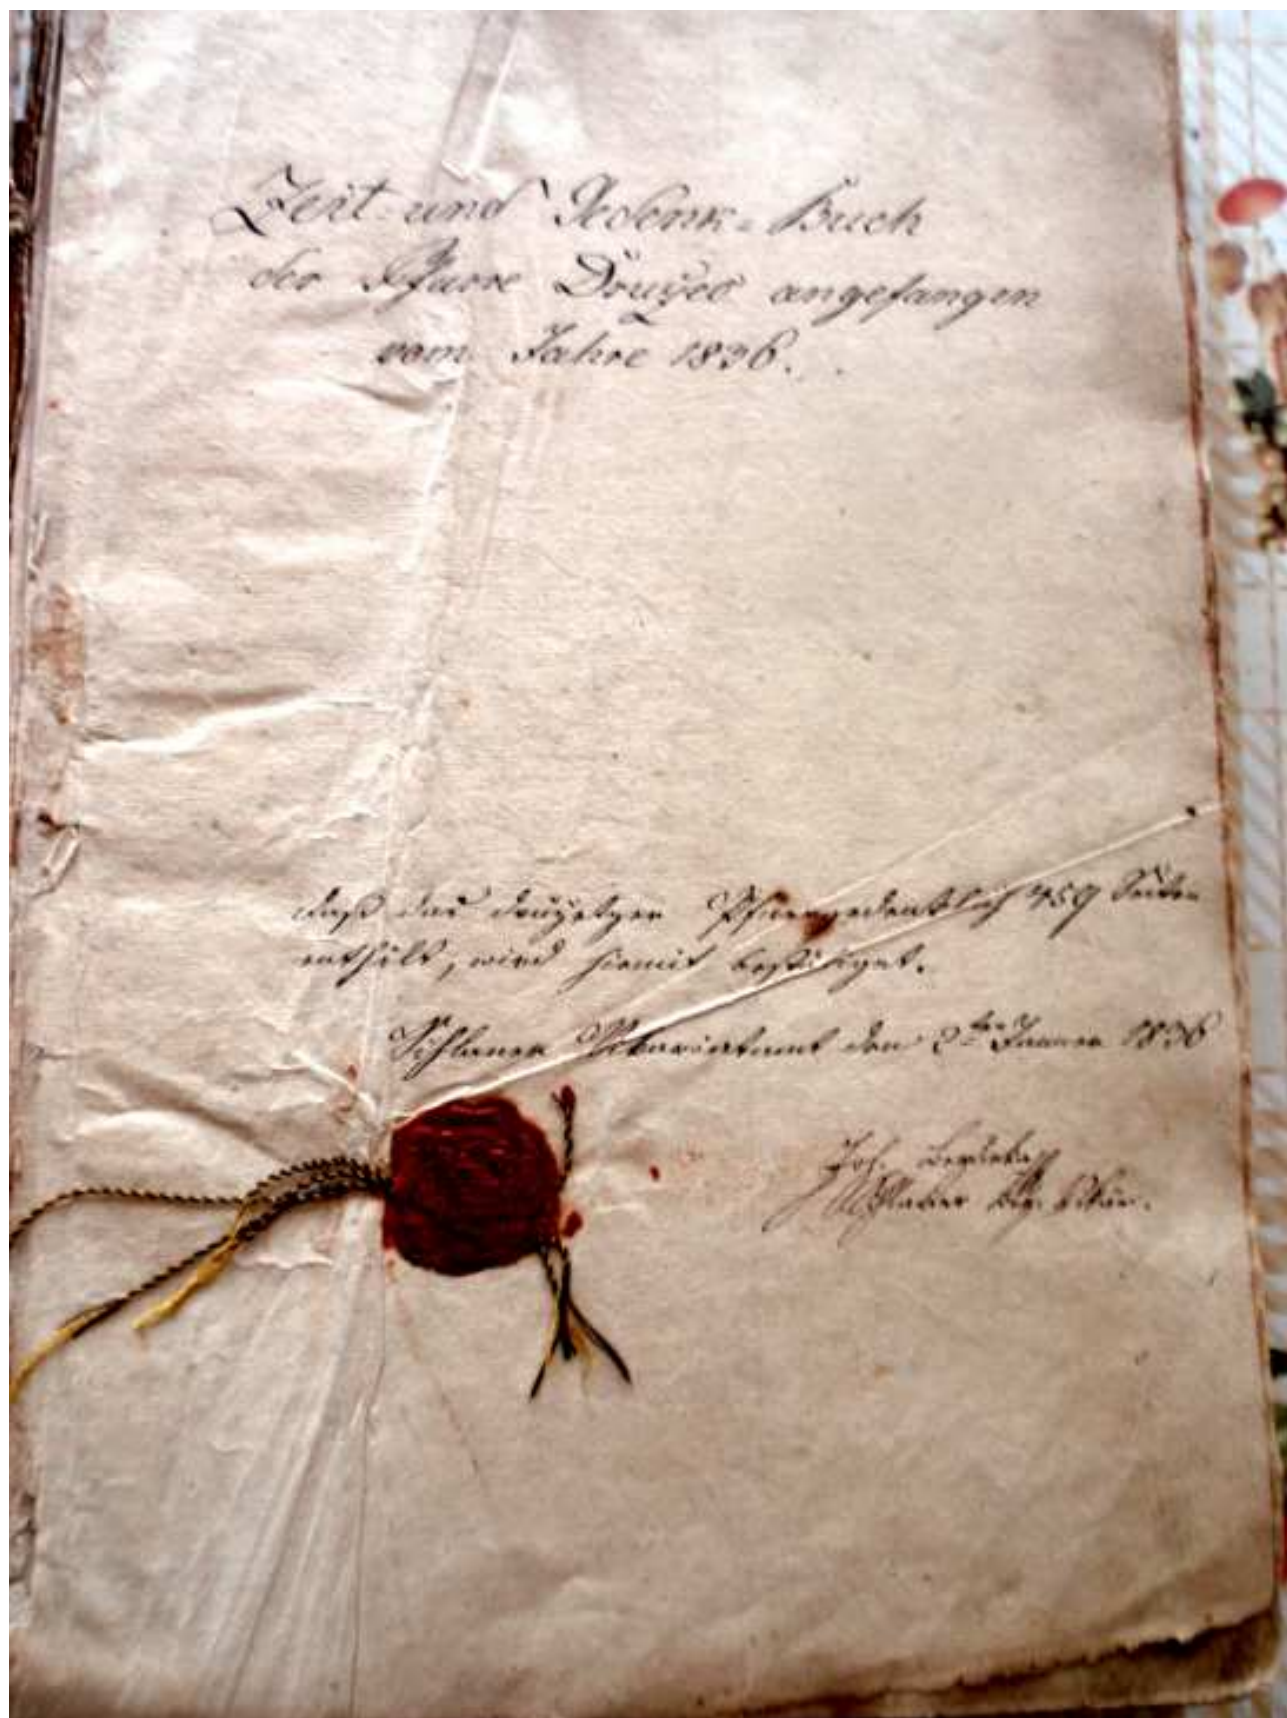 Zeit- und Gedenk-Buch
der Pfarre Družec angefangen
vom Jahre 1836.
Daß das Družetzer Pfarrgedenkbuch 459 Seiten
enthält, wird hiemit bestätiget.
Schlaner Vikariatamt den 2ten Jänner 1836
Joh.